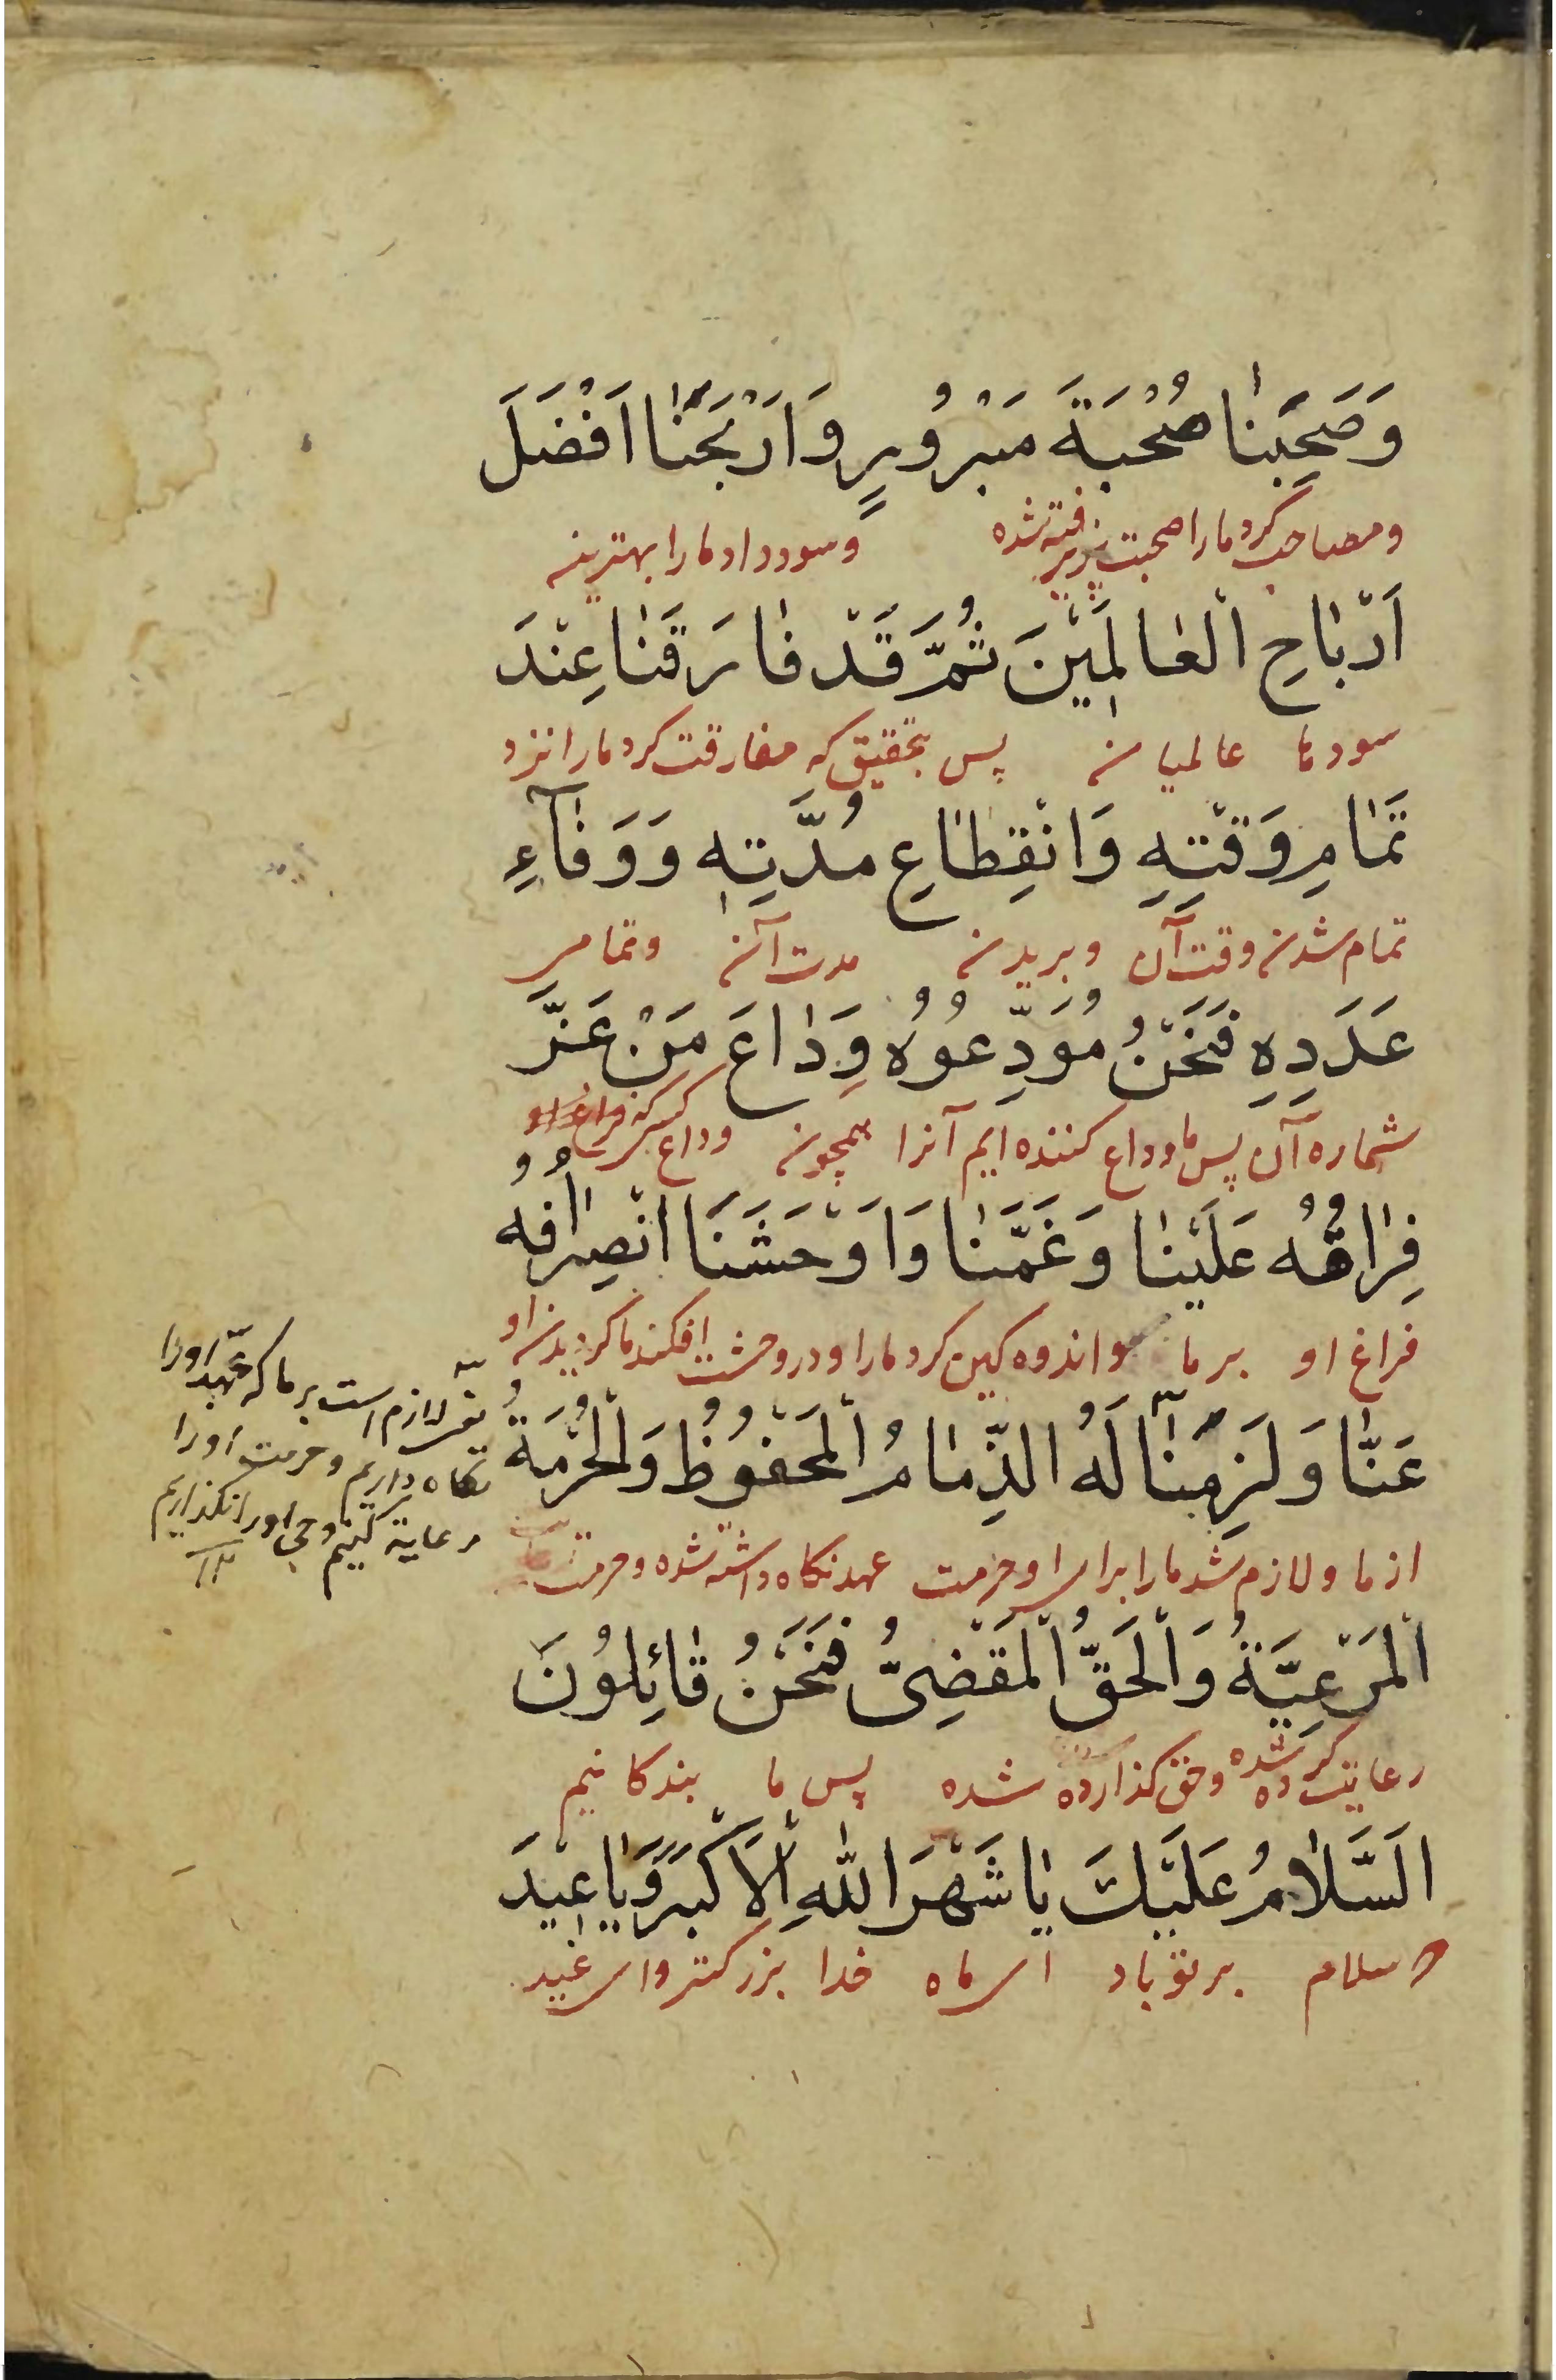 وَصَحِبَنٰا صُحْبَةَ مَبْرُوْرٍ وَاَرْبَحَنٰا اَفْضَلَ
ومصاحب کرد مارا صحبت پزیرفته شده وسود داد مارا بهترین
اَرْبٰاحِ الْعٰالَمِيْنَ ثُمَّ قَدْ فٰارَقَنٰا عِنْدَ
سودها عالمیان پس بتحقیق که مفارقت کرد مارا نزد
تَمٰامِ وَقْتِهِ وَانْقِطٰاعِ مُدَّتِهِ وَوَفٰآءِ
تمام شدن وقت آن وبریدن مدت آن وتمامی
عَدَدِهِ فَنَحْنُ مُوَدِّعُوْهُ وِدٰاعَ مَنْ عَزَّ
شماره آن پس ما وداع کننده ایم آنرا همچون وداع کسی که فراغ او
فِرٰاقُهُ عَلَيْنٰا وَغَمَّنٰا وَاَوْحَشَنَا انْصِرٰافُهُ
فراغ او بر ما واندوه کین کرد مارا ودر وحشت افکند ما کردیدن او
عَنّٰا وَلَزِمَنٰا لَهُ الذِّمٰامُ الْمَحْفُوْظُ وَالْحُرْمَةُ
از ما ولازم شد مارا برای او حرمت عهد نکاه داشته شده وحرمت
الْمَرْعِيَّةُ وَالْحَقُّ الْمَقْضِىُّ فَنَحْنُ قٰائِلُوْنَ
رعایت کرده شده وحق کذارده شده پس ما بندکانیم
اَلسَّلٰامُ عَلَيْكَ يٰا شَهْرَ اللّٰهِ الْاَكْبَرَ وَيٰا عِيْدَ
سلام بر تو باد ای ماه خدا بزرکتر وای عید
یعنی لازم است بر ما که عهد اورا
نکاه داریم وحرمت اورا
رعایة کنیم وحق اورا نکذاریم
۱۲